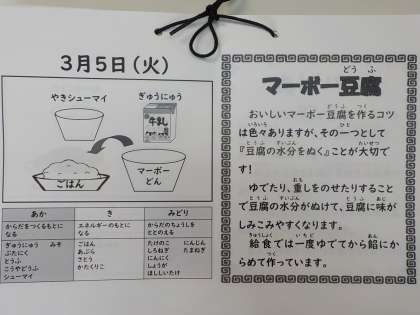 3月5日（火）
やきシューマイ
ぎゅうにゅう
牛乳
ごはん
マーボー
どん
あか
き
みどり
からだをつくるもとに
なる
エネルギーのもとに
なる
からだのちょうしを
ととのえる
ぎゅうにゅう みそ
ぶたにく
とうふ
こうやどうふ
シューマイ
ごはん
あぶら
さとう
かたくりこ
たけのこ にんじん
しろねぎ たまねぎ
にんにく
しょうが
ほししいたけ
どうふ
マーボー豆腐
どうふ つく
おいしいマーボー豆腐を作るコツ
いろいろ ひと
は色々ありますが、その一つとして
とうふ すいぶん たいせつ
『豆腐の水分をぬく』ことが大切で
す！
おも
ゆでたり、重しをのせたりすること
とうふ すいぶん とうふ あじ
で豆腐の水分がぬけて、豆腐に味が
しみこみやすくなります。
きゅうしょく いちど あん
給食では一度ゆでてから餡にか
つく
らめて作っています。